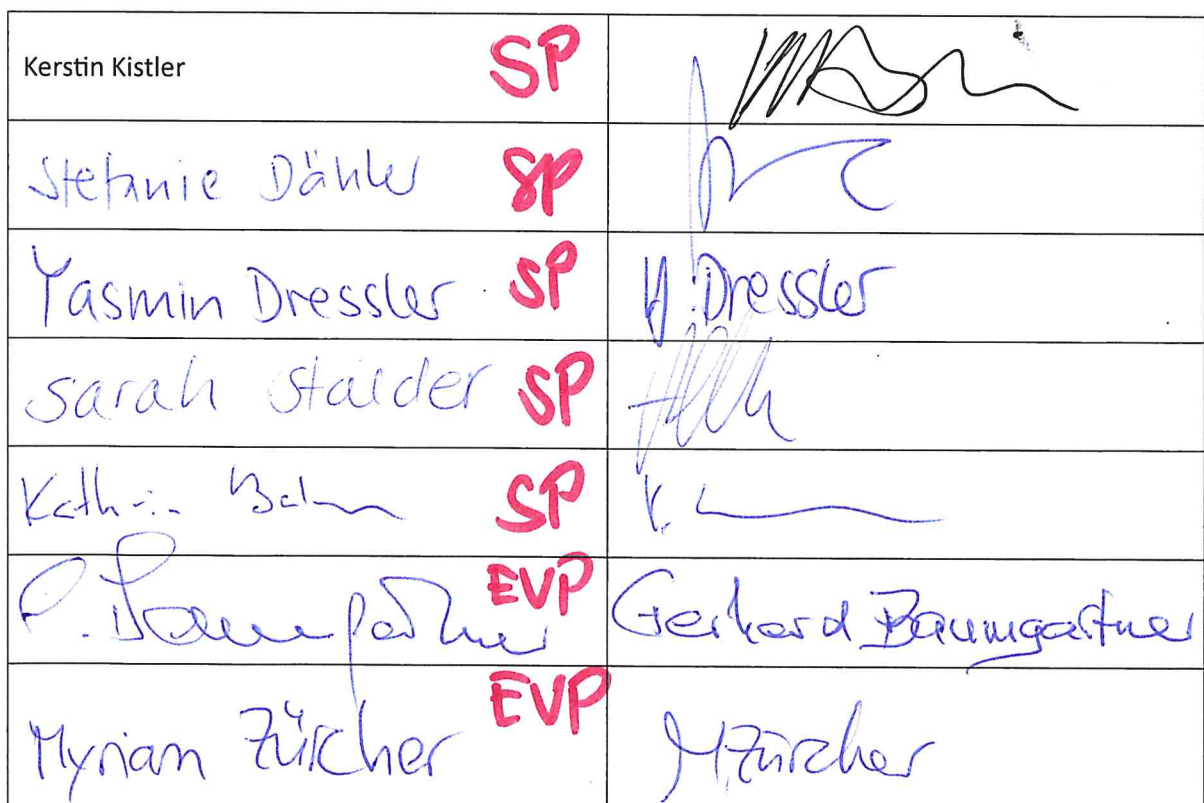 Kerstin Kistler SP
Stefanie Dähler SP
Yasmin Dressler SP Y. Dressler
Sarah Stalder SP
Kathrin SP K.
EVP Gerhard Baumgartner
Myriam Zürcher EVP M. Zürcher